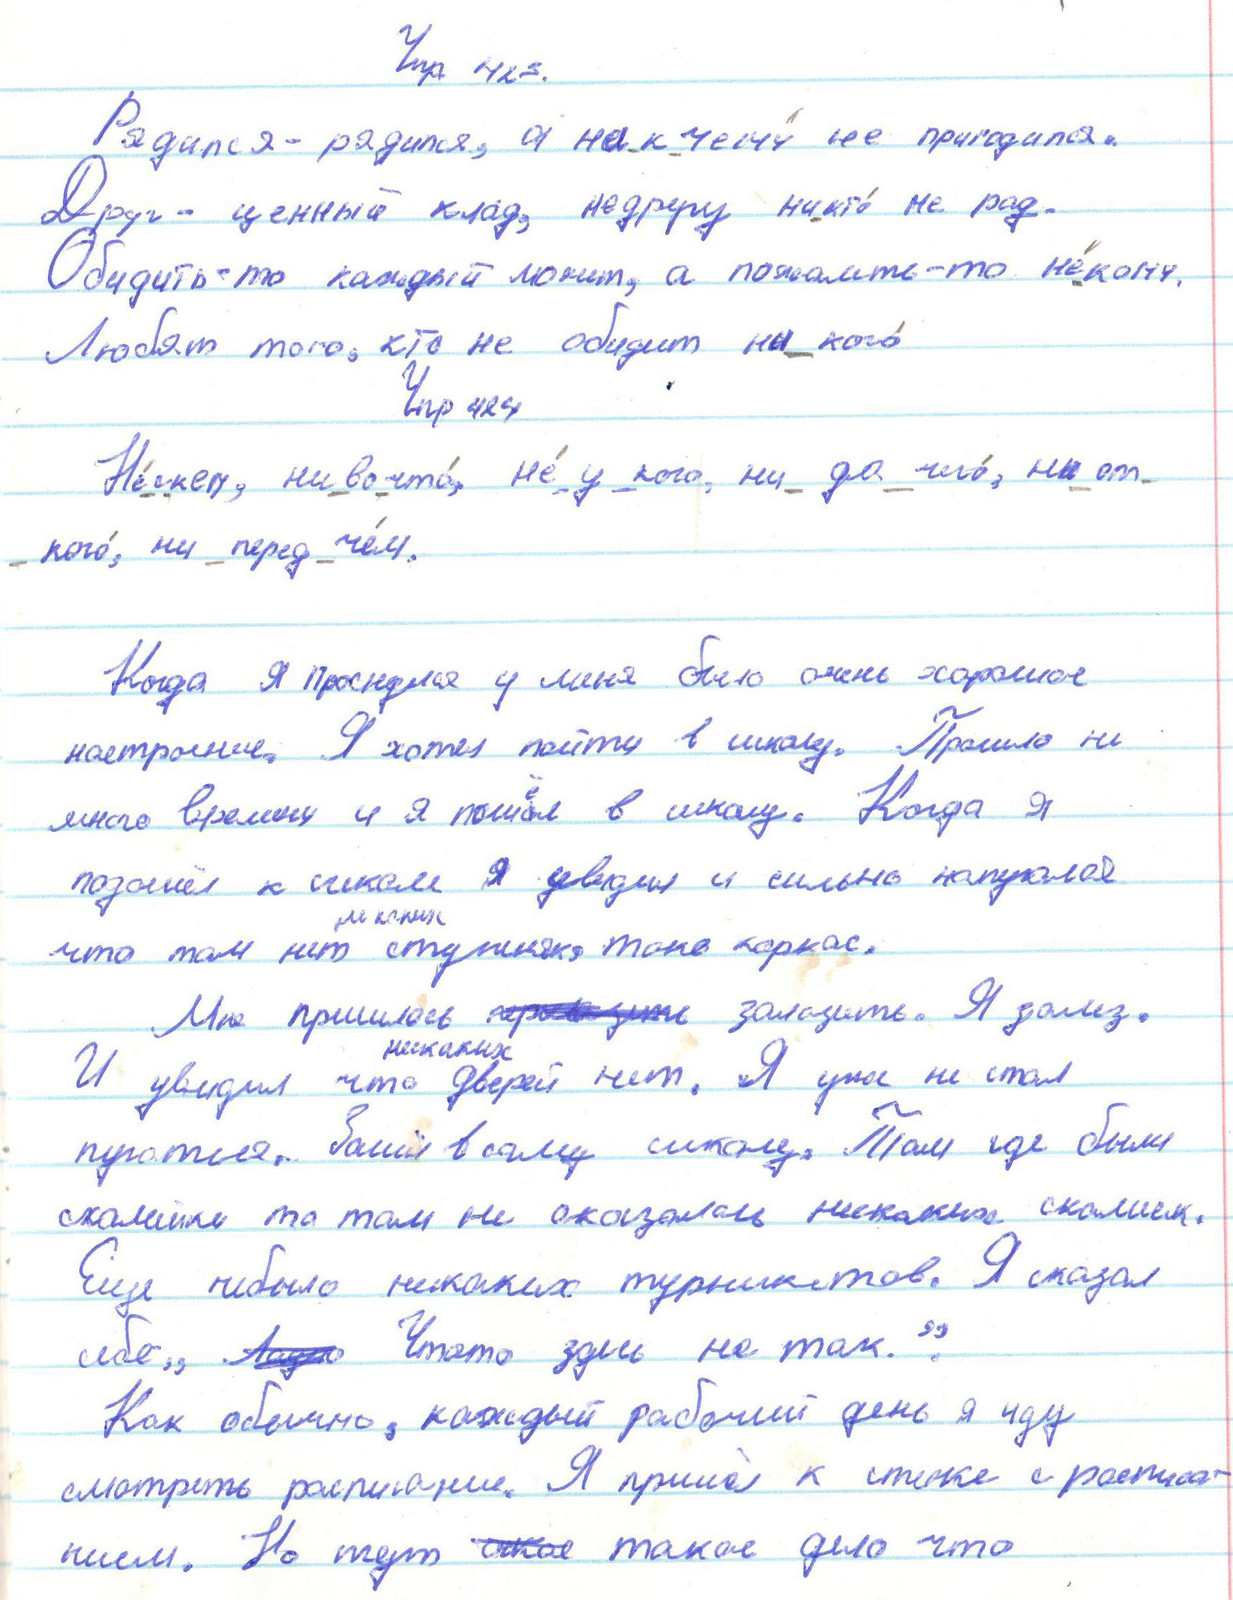 Упр 423.
Рядился-рядился, а ни к чему не пригодился.
Друг- ценный клад, недругу никто не рад.
Обидить-то каждыйможит, а пожалеть-то некому.
Любят того, кто не обидит ни кого
Упр 424
Не с кем, ни во что, не у кого, ни до чего, ни от
кого, ни перед чем.
Когда я проснулся у меня было очень хорошое
настроение. Я хотел пойти в школу. Прошло ни
много времени и я пошёл в школу. Когда я
подошёл к школе я увидил и сильно напугался
что там нет ни каких ступенек, токо каркас.
Мне пришлось залазить. Я залез.
И увидил что никаких дверей нет. Я уже не стал
пугатся. Зашёл в саму школу. Там где были
скамейки то там не оказалось никаких скамеек.
Еще небыло никаких турникетов. Я сказал
себе,, Чтото здесь не так.”.
Как обычно, каждый рабочий день я иду
смотреть расписание. Я пришёл к стенке с расписа-
нием. Но тут такое дело что